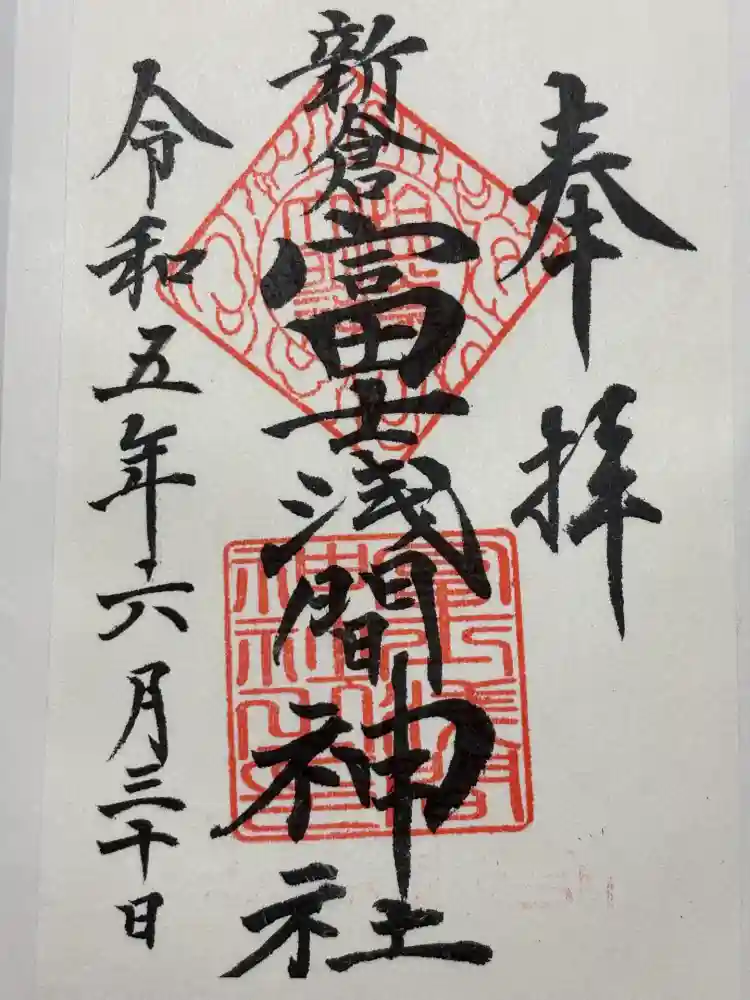 奉拝
新倉富士浅間神社
令和五年六月三十日